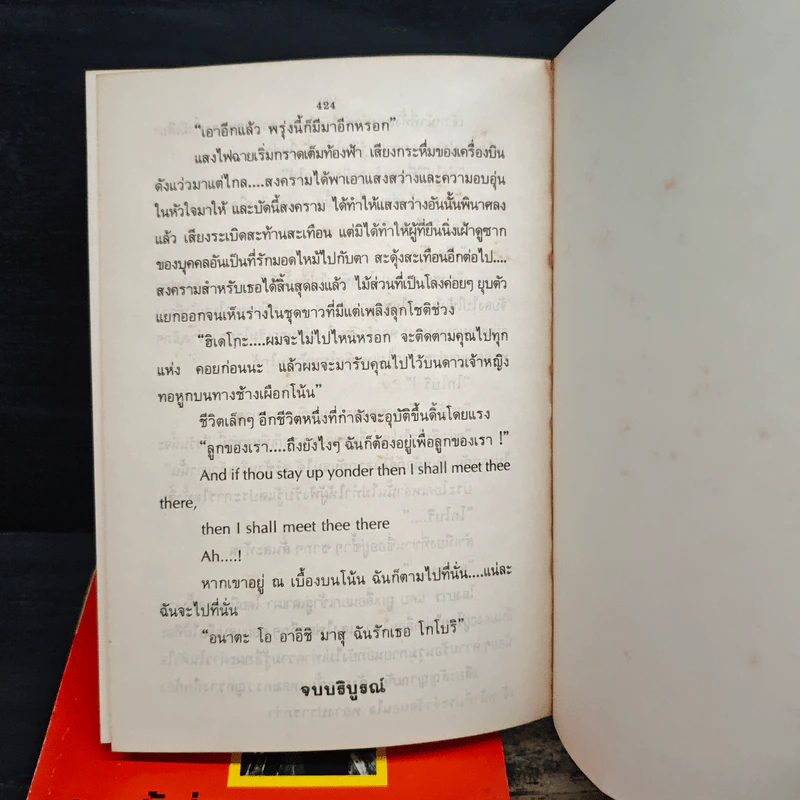 424
“เอาอีกแล้ว พรุ่งนี้ก็มีมาอีกหรอก”
แสงไฟฉายเริ่มกราดเต็มท้องฟ้า เสียงกระหึ่มของเครื่องบิน
ดังแว่วมาแต่ไกล....สงครามได้พาเอาแสงสว่างและความอบอุ่น
ในหัวใจมาให้ และบัดนี้สงคราม ได้ทำให้แสงสว่างอันนั้นพินาศลง
แล้ว เสียงระเบิดสะท้านสะเทือน แต่มิได้ทำให้ผู้ที่ยืนนิ่งเฝ้าดูซาก
ของบุคคลอันเป็นที่รักมอดไหม้ไปกับตา สะดุ้งสะเทือนอีกต่อไป....
สงครามสำหรับเธอได้สิ้นสุดลงแล้ว ไม้ส่วนที่เป็นโลงค่อยๆ ยุบตัว
แยกออกจนเห็นร่างในชุดขาวที่มีแต่เพลิงลุกโชติช่วง
“ฮิเดโกะ....ผมจะไม่ไปไหนหรอก จะติดตามคุณไปทุก
แห่ง คอยก่อนนะ แล้วผมจะมารับคุณไปไว้บนดาวเจ้าหญิง
ทอหูกบนทางช้างเผือกโน้น”
ชีวิตเล็กๆ อีกชีวิตหนึ่งที่กำลังจะอุบัติขึ้นดิ้นโดยแรง
“ลูกของเรา....ถึงยังไงๆ ฉันก็ต้องอยู่เพื่อลูกของเรา !”
And if thou stay up yonder then I shall meet thee
there,
then I shall meet thee there
Ah....!
หากเขาอยู่ ณ เบื้องบนโน้น ฉันก็ตามไปที่นั่น....แน่ละ
ฉันจะไปที่นั่น
“อนาตะ โอ อาอิชิ มาสุ ฉันรักเธอ โกโบริ”
จบบริบูรณ์